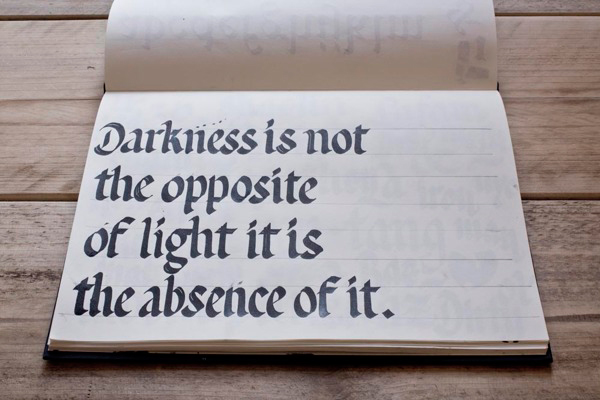 Darkness is not
the opposite
of light it is
the absence of it.